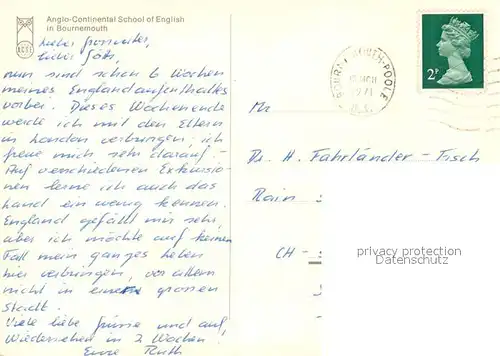 Anglo-Continental School of English
in Bournemouth
ACSE
Lieber Grossvater,
lieber Götti,
nun sind schon 6 Wochen
meines Englandaufenthaltes
vorbei. Dieses Wochenende
werde ich mit den Eltern
in London verbringen, ich
freue mich sehr darauf.
Auf verschiedenen Exkursio-
nen lerne ich auch das
Land ein wenig kennen.
England gefällt mir sehr,
aber ich möchte auf keinen
Fall mein ganzes Leben
hier verbringen, vor allem
nicht in einer grossen
Stadt.
Viele liebe Grüsse und auf
Wiedersehen in 2 Wochen!
Eure Ruth
BOURNEMOUTH-POOLE
1971
2P
Mr
Dr. H. Fahrländer-Tisch
Rain
CH -
privacy protection
Datenschutz